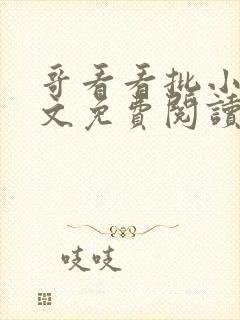 哥看看批小
文免費閱讀
吱吱